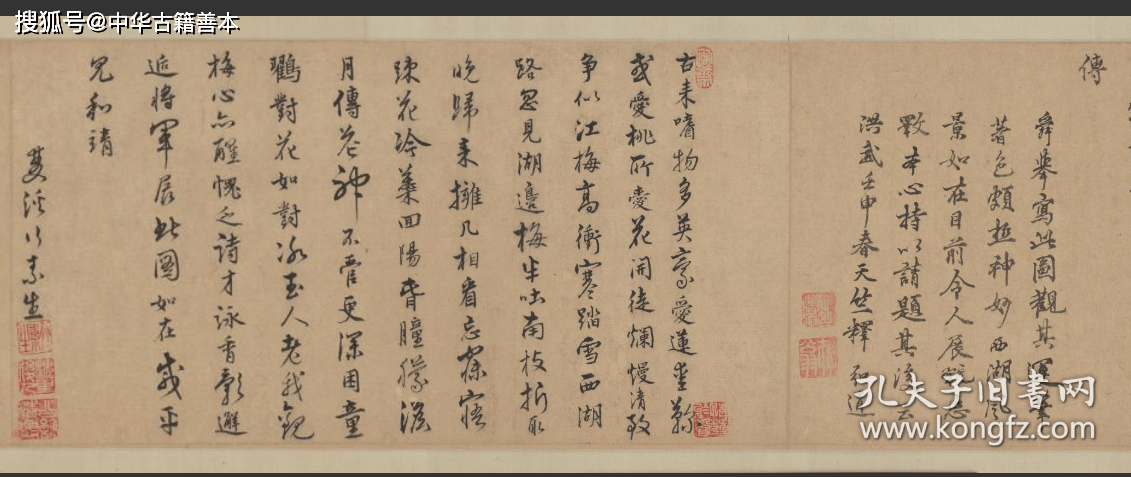 搜狐号@中华古籍善本
傳
舜舉寫此圖觀其運筆
著色頗極神妙西湖風
景如在目前令人展玩忘
斁本心持以請題其後云
洪武壬申春天竺釋
古来嗜物多英豪愛蓮愛菊
或愛桃所愛花開徒爛慢清致
争似江梅高衝寒踏雪西湖
路忽見湖邊梅半吐南枝折取
晚歸来擁几相看忘寐寤
疎花冷蘂回陽春朧朦澹
月傳花神不管更深困童
鶴對花如對冰玉人老我觀
梅心亦醒愧乏詩才詠香影邂
逅將軍展此圖如在咸平
見和靖
孔夫子旧书网
www.kongfz.com